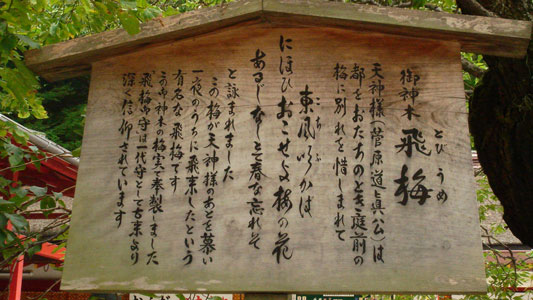 とびうめ
御神木 飛梅
天神様(菅原道真公)は
都をおたちのとき庭前の
梅に別れを惜しまれて
こちふ
東風吹かば
にほひおこせよ梅の花
あるじなしとて春な忘れそ
と詠まれました
この梅が天神様のあとを慕い
一夜のうちに飛来したという
有名な飛梅です
この御神木の梅実で奉製しました
飛梅守は一代守として古来より
深く信仰されています